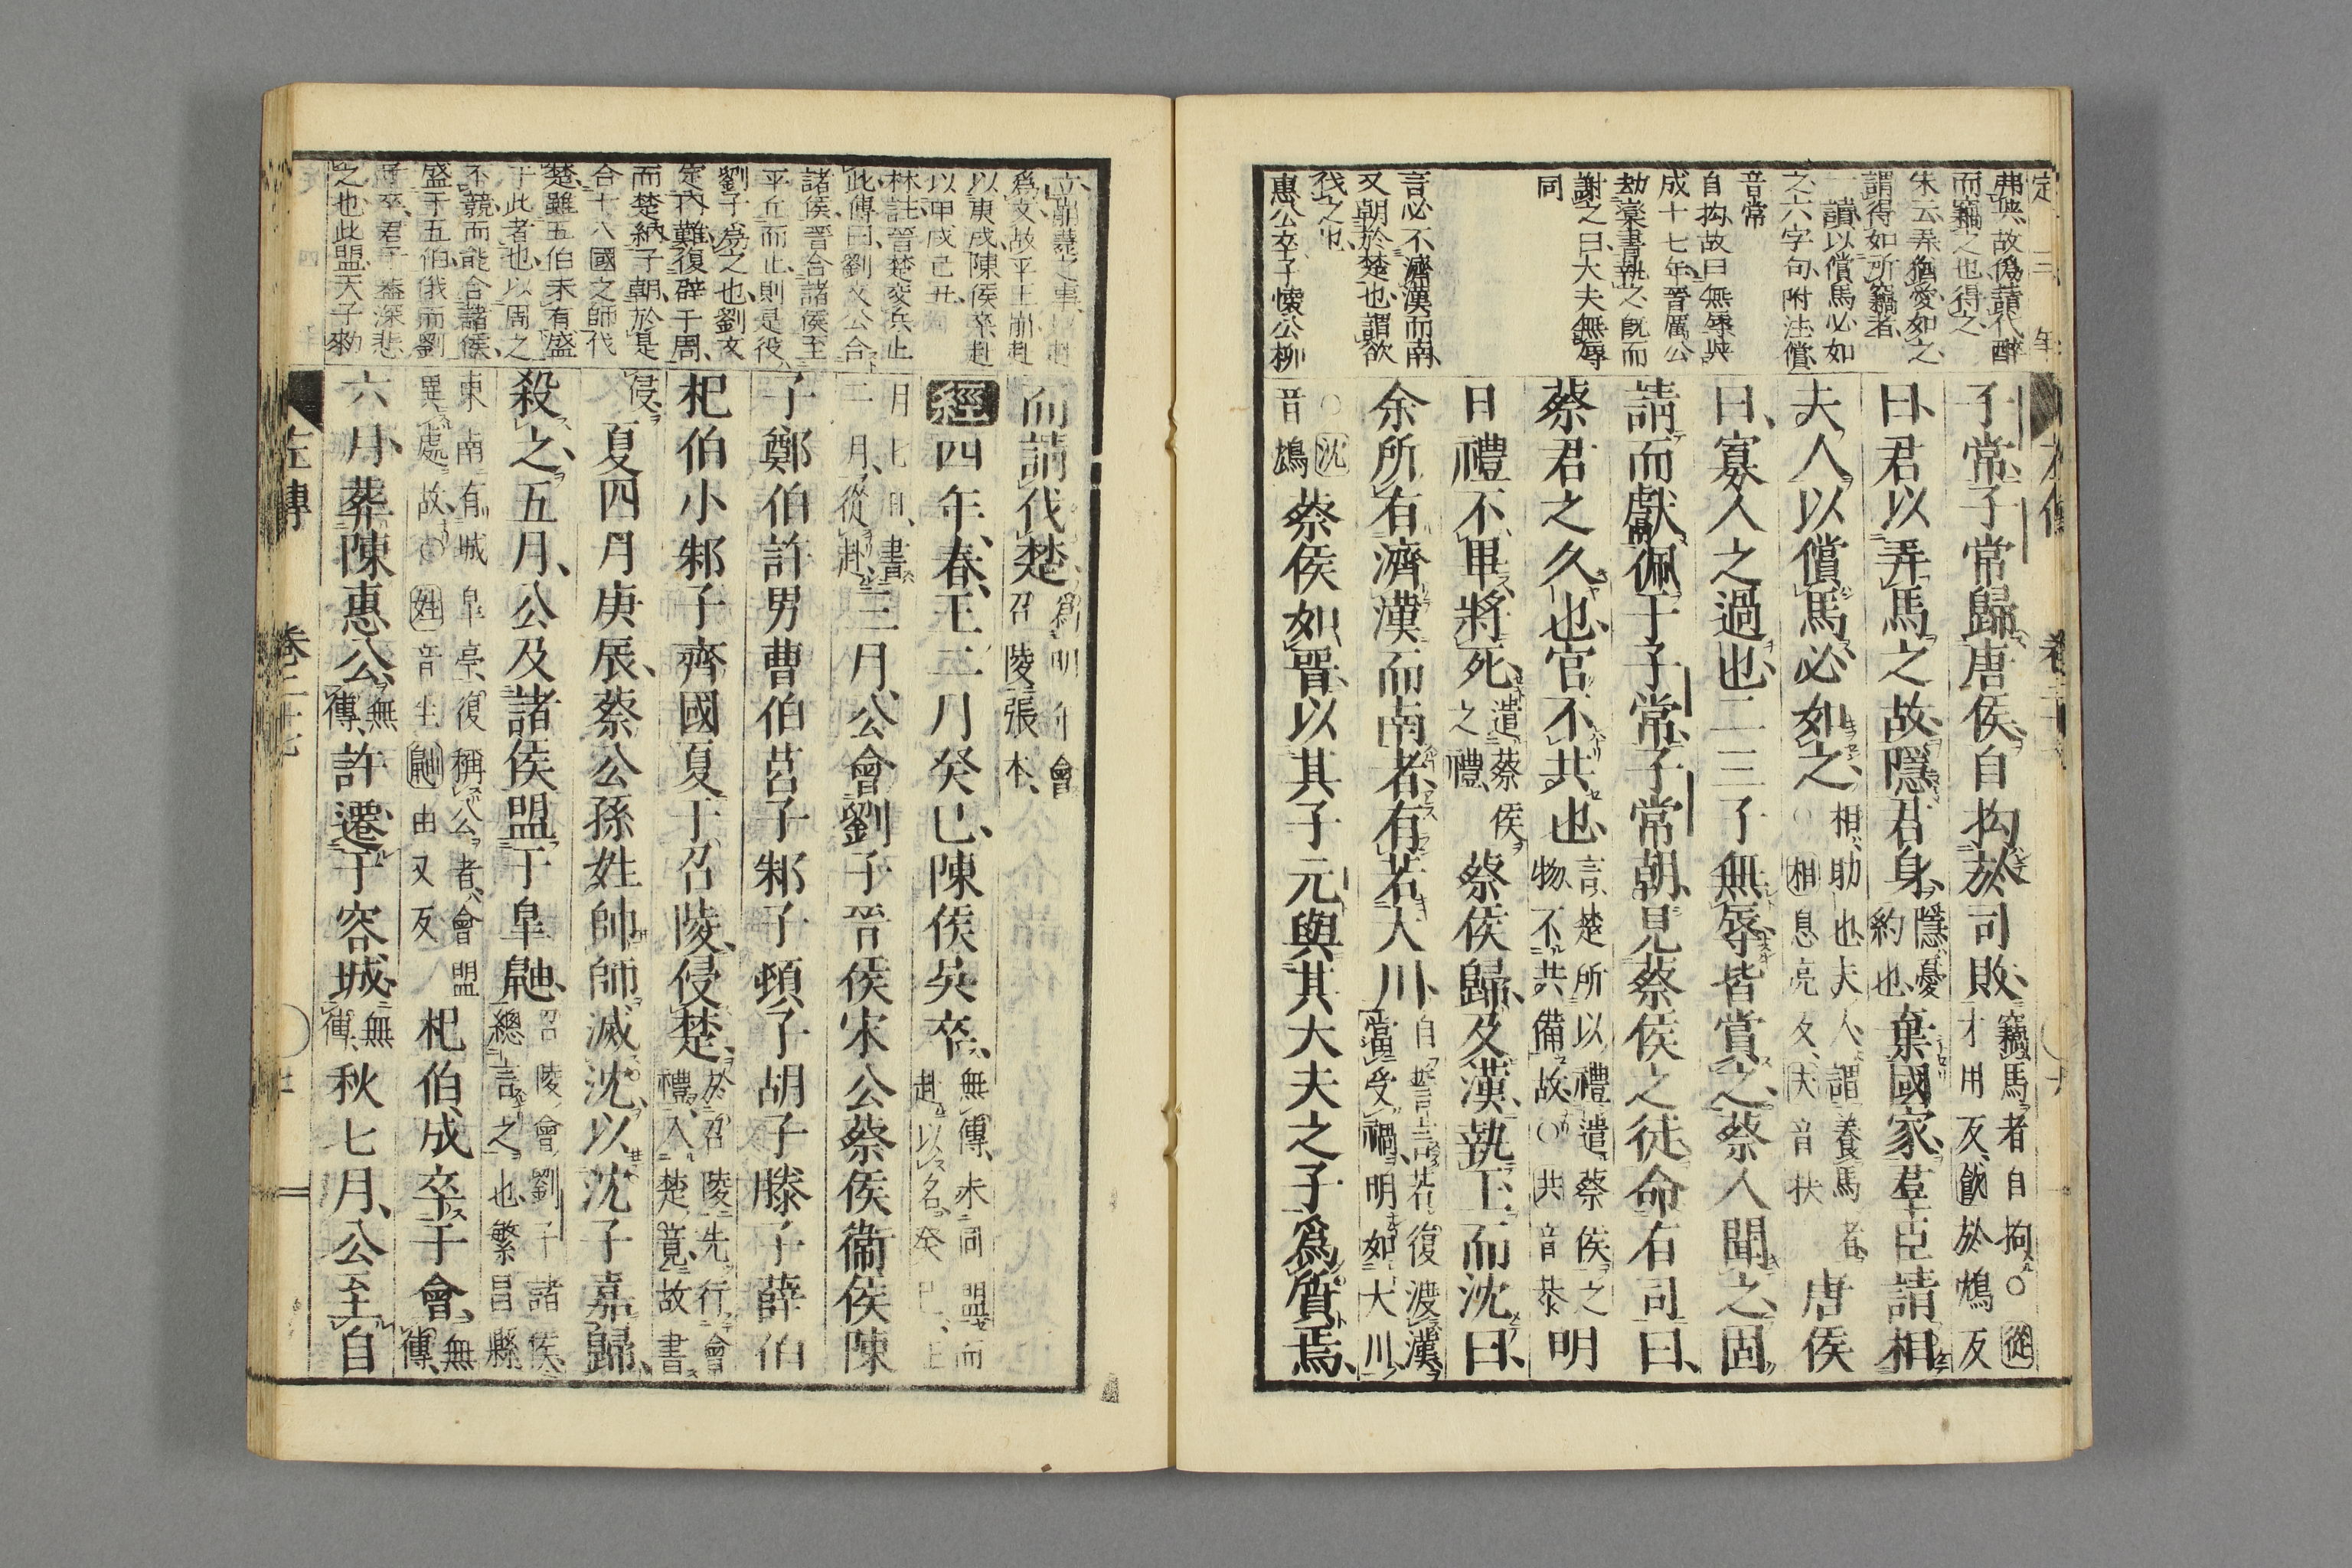 子常子常歸唐侯自拘於司敗竊馬者自拘○從
才用反飲於鴆反
曰君以弄馬之故隱君身隱憂
約也棄國家羣臣請相
夫人以償馬必如之相助也夫人謂養馬者
○相息亮反夫音扶唐侯
曰寡人之過也二三子無辱皆賞之蔡人聞之固
請而獻佩于子常子常朝見蔡侯之徒命有司曰
蔡君之久也官不共也言楚所以禮遣蔡侯之
物不共備故○共音恭明
日禮不畢將死遣蔡侯
之禮蔡侯歸及漢執玉而沈曰
余所有濟漢而南者有若大川自誓言若復渡漢
當受禍明如大川
○沈
音鴆蔡侯如晉以其子元與其大夫之子爲質焉
而請伐楚爲明年會
召陵張本
經四年春王二月癸巳陳侯吳卒無傳未同盟而
赴以名癸巳正
月七日書
二月從赴三月公會劉子晉侯宋公蔡侯衞侯陳
子鄭伯許男曹伯莒子邾子頓子胡子滕子薛伯
杞伯小邾子齊國夏于召陵侵楚於召陵先行會
禮入楚竟故書
侵夏四月庚辰蔡公孫姓帥師滅沈以沈子嘉歸
殺之五月公及諸侯盟于皐鼬召陵會劉子諸侯
總言之也繁昌縣
東南有城皐亭復稱公者會盟
異處故○姓音生鼬由又反杞伯成卒于會無
傳
六月葬陳惠公無
傳許遷于容城無
傳秋七月公至自
弗與故僞請代醉
而竊之也得之
朱云弄猶愛如之
謂得如所竊者
一讀以償馬必如
之六字句附注償
音常
自拘故曰無辱與
成十七年晉厲公
劫欒書執之旣而
謝之曰大夫無辱
同
言必不濟漢而南
又朝於楚也謂欲
伐之也
惠公卒子懷公柳
立崩薨之事赴
爲文故平王崩赴
以庚戌陳侯卒赴
以甲戌己丑
林註晉楚交兵止
此傳曰劉文公合
諸侯晉合諸侯至
平丘而止則是役
劉子爲之也劉文
定內難復辟于周
而楚納子朝於是
合十八國之師代
楚雖五伯未有盛
于此者也以周之
不競而能合諸侯
盛于五伯俄而劉
子卒君子蓋深悲
之也此盟天子初
左傳
卷二十七